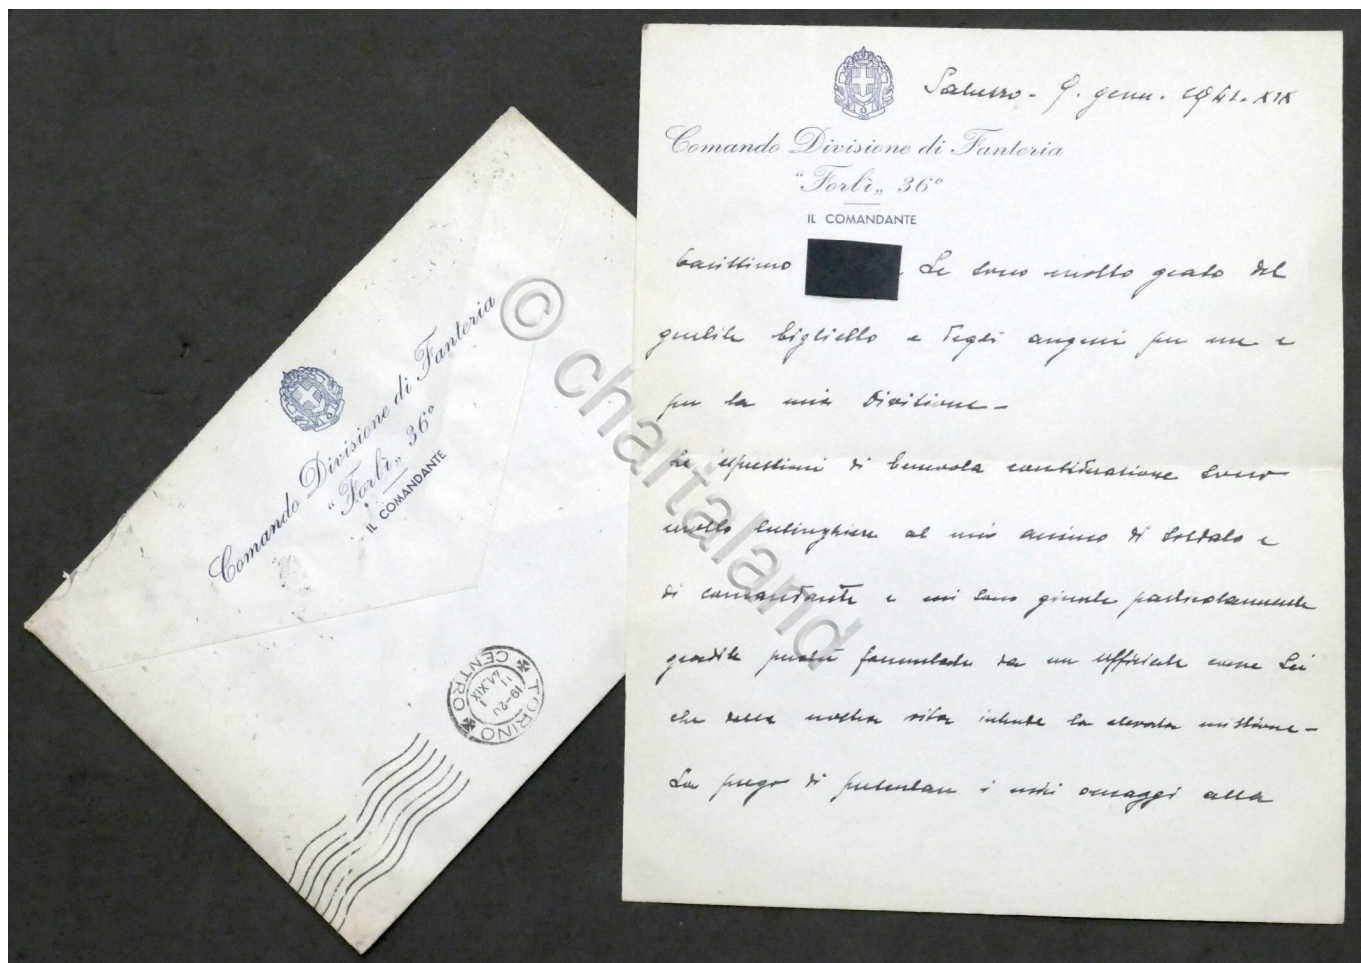 Comando Divisione di Fanteria
"Forlì„ 36°
IL COMANDANTE
TORINO
CENTRO
19-20
11 1
41 XIX
Saluzzo - 9. genn. 1941. XIX
Comando Divisione di Fanteria
"Forlì„ 36°
IL COMANDANTE
Carissimo Le sono molto grato del
gentile biglietto e degli auguri per me e
per la mia Divisione -
Le espressioni di benevola considerazione sono
molto lusinghiere al mio animo di soldato e
di comandante e mi sono giunte particolarmente
gradite perché formulate da un ufficiale come Lei
che della nostra vita intende la elevata missione -
La prego di presentare i miei omaggi alla
© chartaland